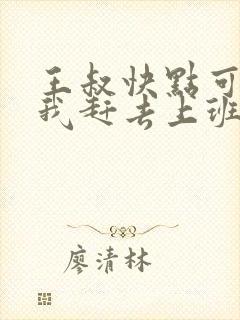 王叔快點可
我赶去上班
廖清林